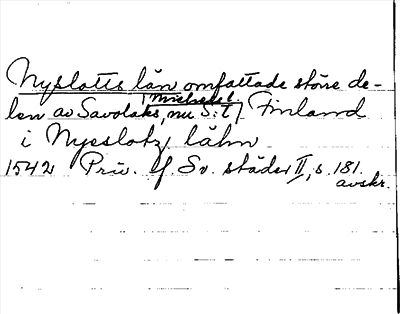 Nyslotts län omfattade större de-
len av Savolaks, nu S:t Michels l. / Finland
i Nyeslotz lähn
1542 Priv. f Sv. städer II, s. 181.
avskr.